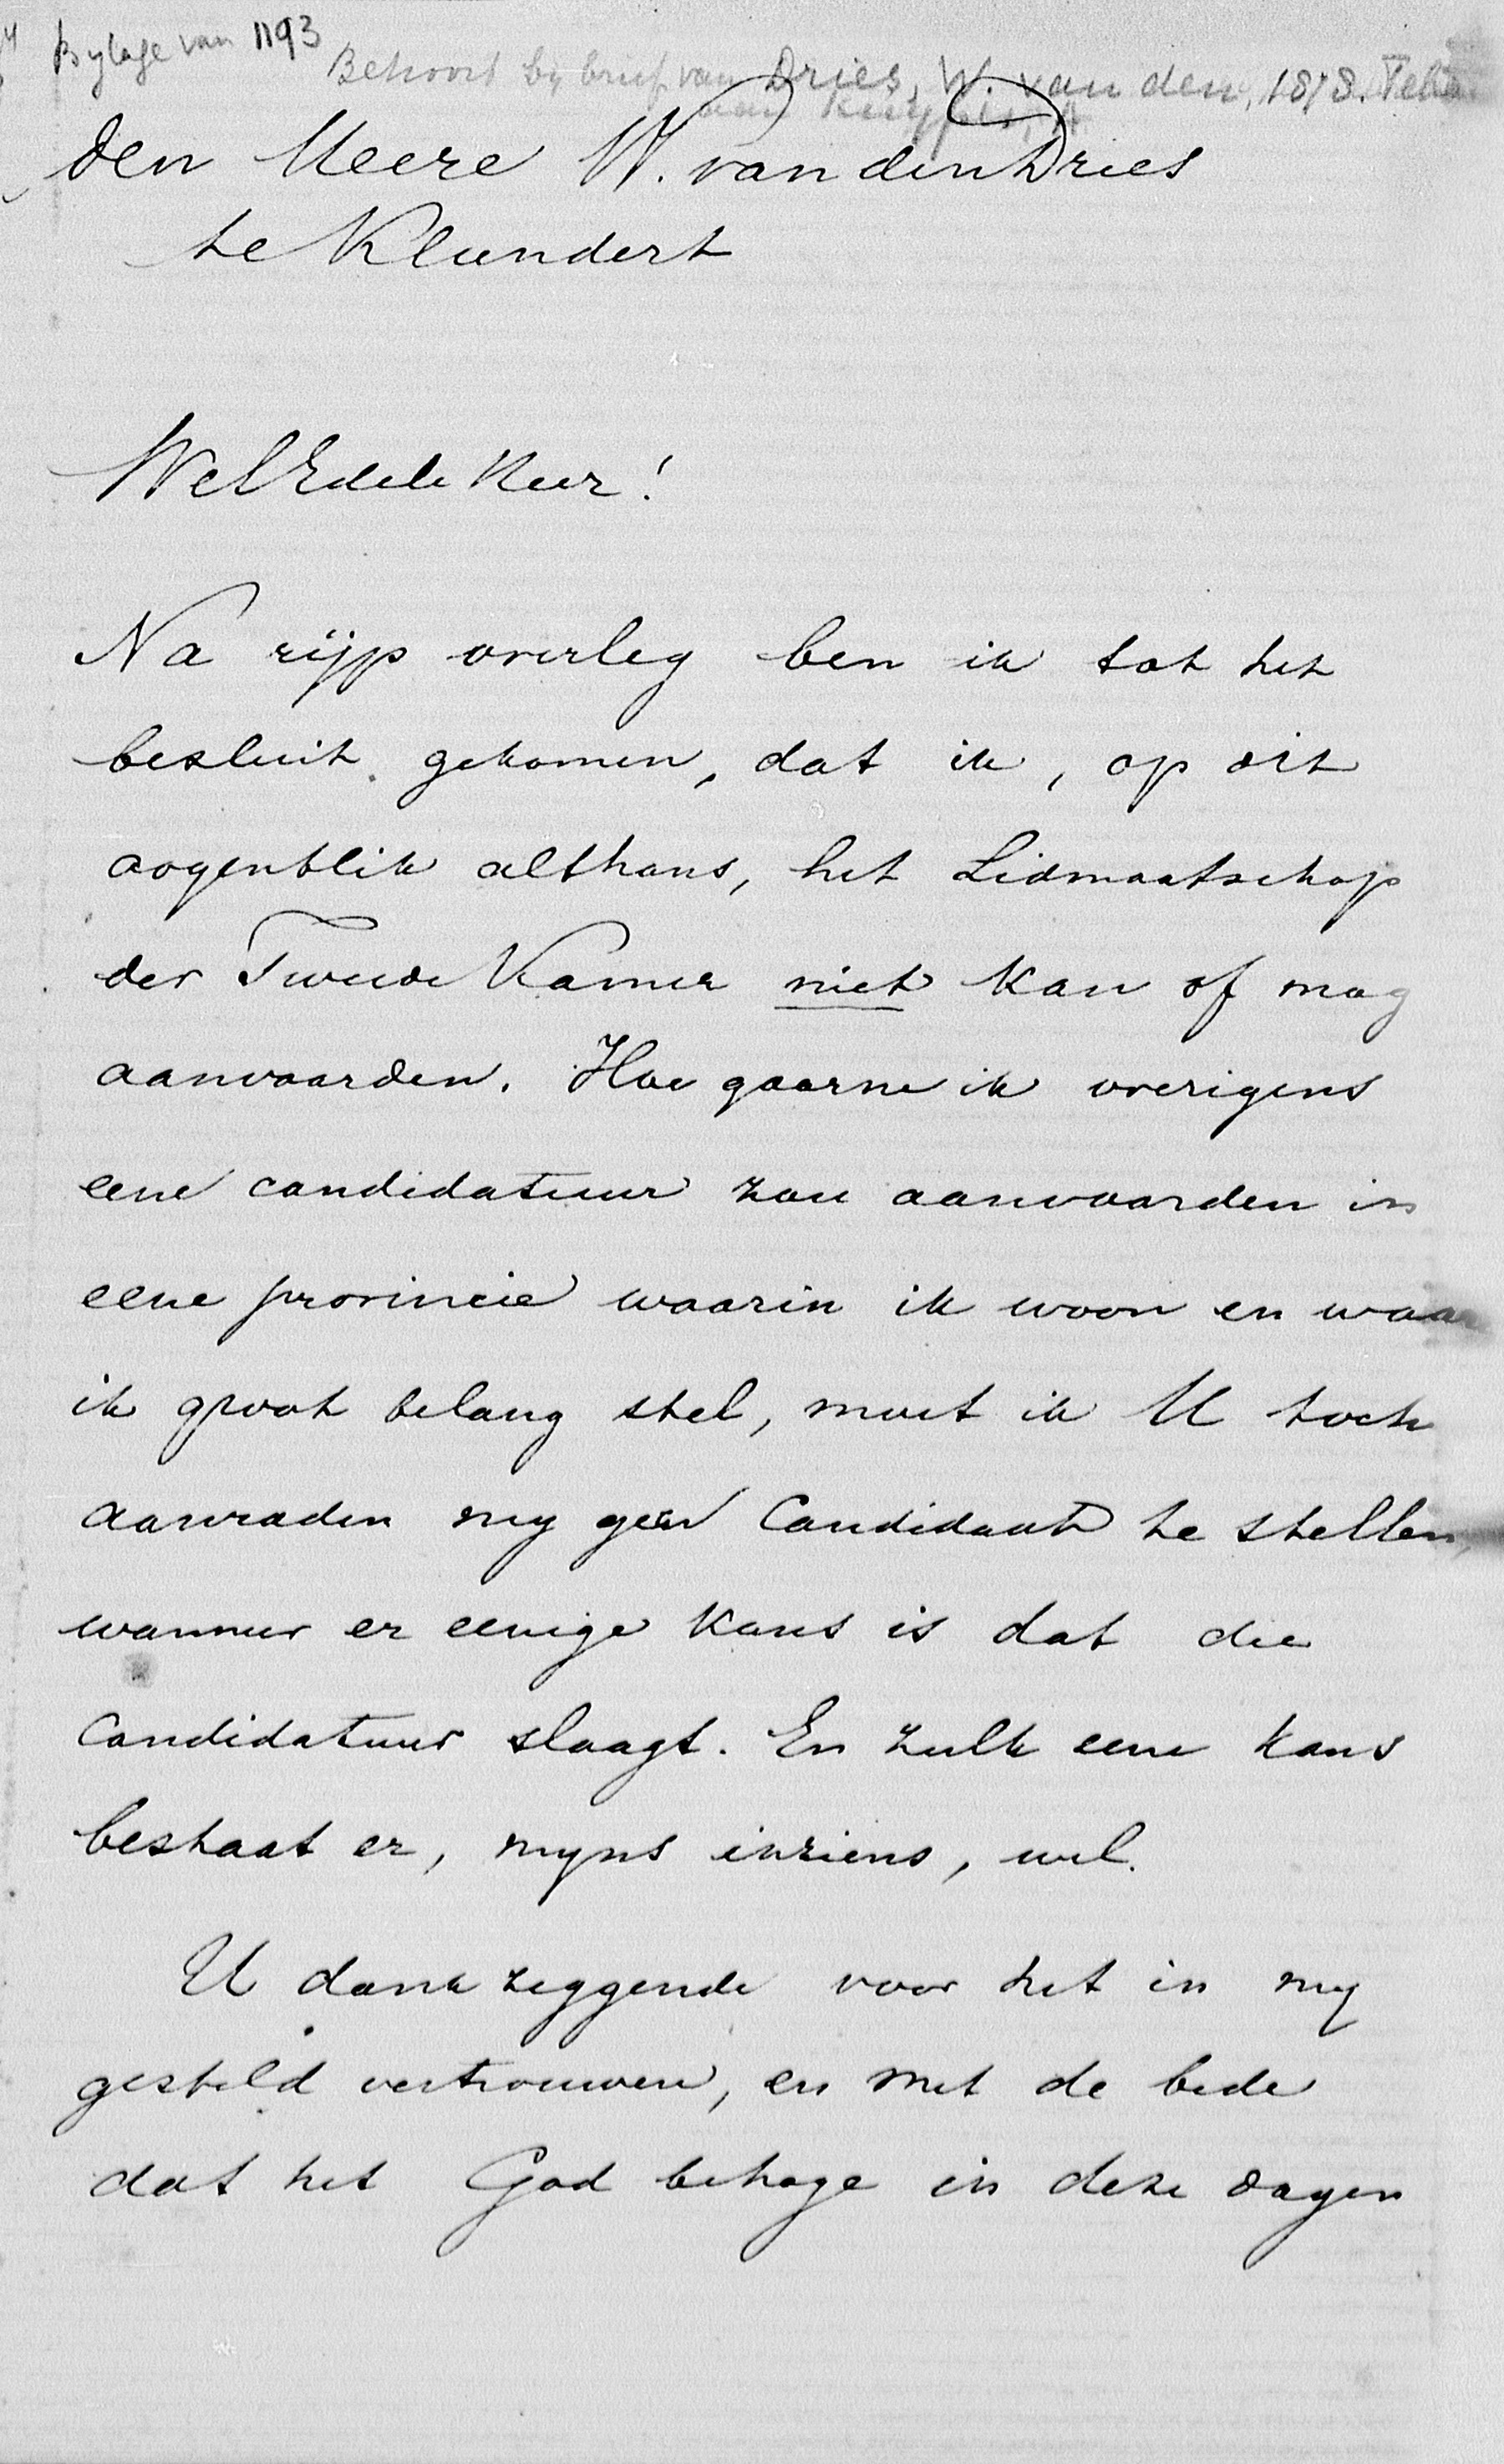 Bylage van 1193
Behoort bij brief van Dries, W. van den, 1878. Febr
aan Kuyper, A
den Heere W. van den Dries
te Klundert
WelEdele Heer!
Na rijp overleg ben ik tot het
besluit gekomen, dat ik, op dit
oogenblik althans, het Lidmaatschap
der Tweede Kamer niet kan of mag
aanvaarden. Hoe gaarne ik overigens
eene candidatuur zou aanvaarden in
eene provincie waarin ik woon en waar
ik groot belang stel, moet ik U toch
aanraden my geen Candidaat te stellen,
wanneer er eenige kans is dat die
Candidatuur slaagt. En zulk eene kans
bestaat er, myns inziens, wel.
U dank zeggende voor het in my
gesteld vertrouwen, en met de bede
dat het God behage in deze dagen